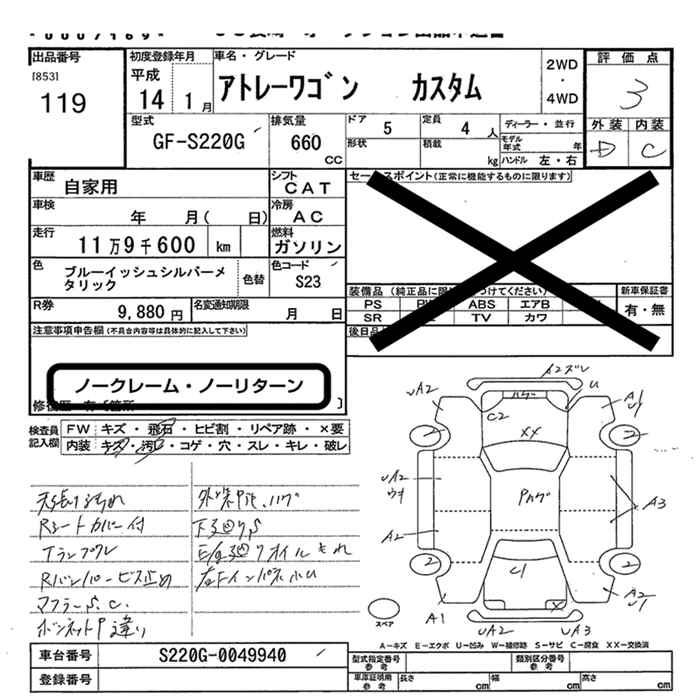 出品番号
[853]
119
初度登録年月
平成
14 1月
車名・グレード
アトレーワゴン カスタム
2WD
・
4WD
評価点
3
外装 内装
D C
型式
GF-S220G
排気量
660
cc
ドア 5
形状
定員 4 人
積載 kg
ディーラー・並行
モデル年式 年
ハンドル 左・右
車歴 自家用
シフト CAT
セールスポイント(正常に機能するものに限ります)
車検 年 月( 日)
冷房 AC
走行 11万9千600 km
燃料 ガソリン
色 ブルーイッシュシルバーメタリック
色替
色コード S23
装備品
PS ABS エアB
SR TV カワ
新車保証書
有・無
後日品
R券 9,880円
名変通知期限 月 日
注意事項申告欄(不具合内容等は具体的に記入して下さい)
ノークレーム・ノーリターン
検査員
記入欄
FW キズ・飛石・ヒビ割・リペア跡・×要
内装 キズ・汚レ・コゲ・穴・スレ・キレ・破レ
天張り汚れ
Rシートカバー付
Tランプワレ
Rバンパービス止め
マフラーS.C.
ボンネットP違い
下廻りS
E/g廻りオイルもれ
A2ズレ
U
A2
A1
U1
C2
XX
2
2
A2
ウキ
Pハゲ
A3
A2
2
2
C1
X
A1
UA2
UA3
A2
U1
スペア
A=キズ E=エクボ U=凹み W=補修跡 S=サビ C=腐食 XX=交換済
車台番号 S220G-0049940
登録番号
型式指定番号
参考
類別区分番号
参考
車庫証明用
参考
長さ cm
幅 cm
高さ cm